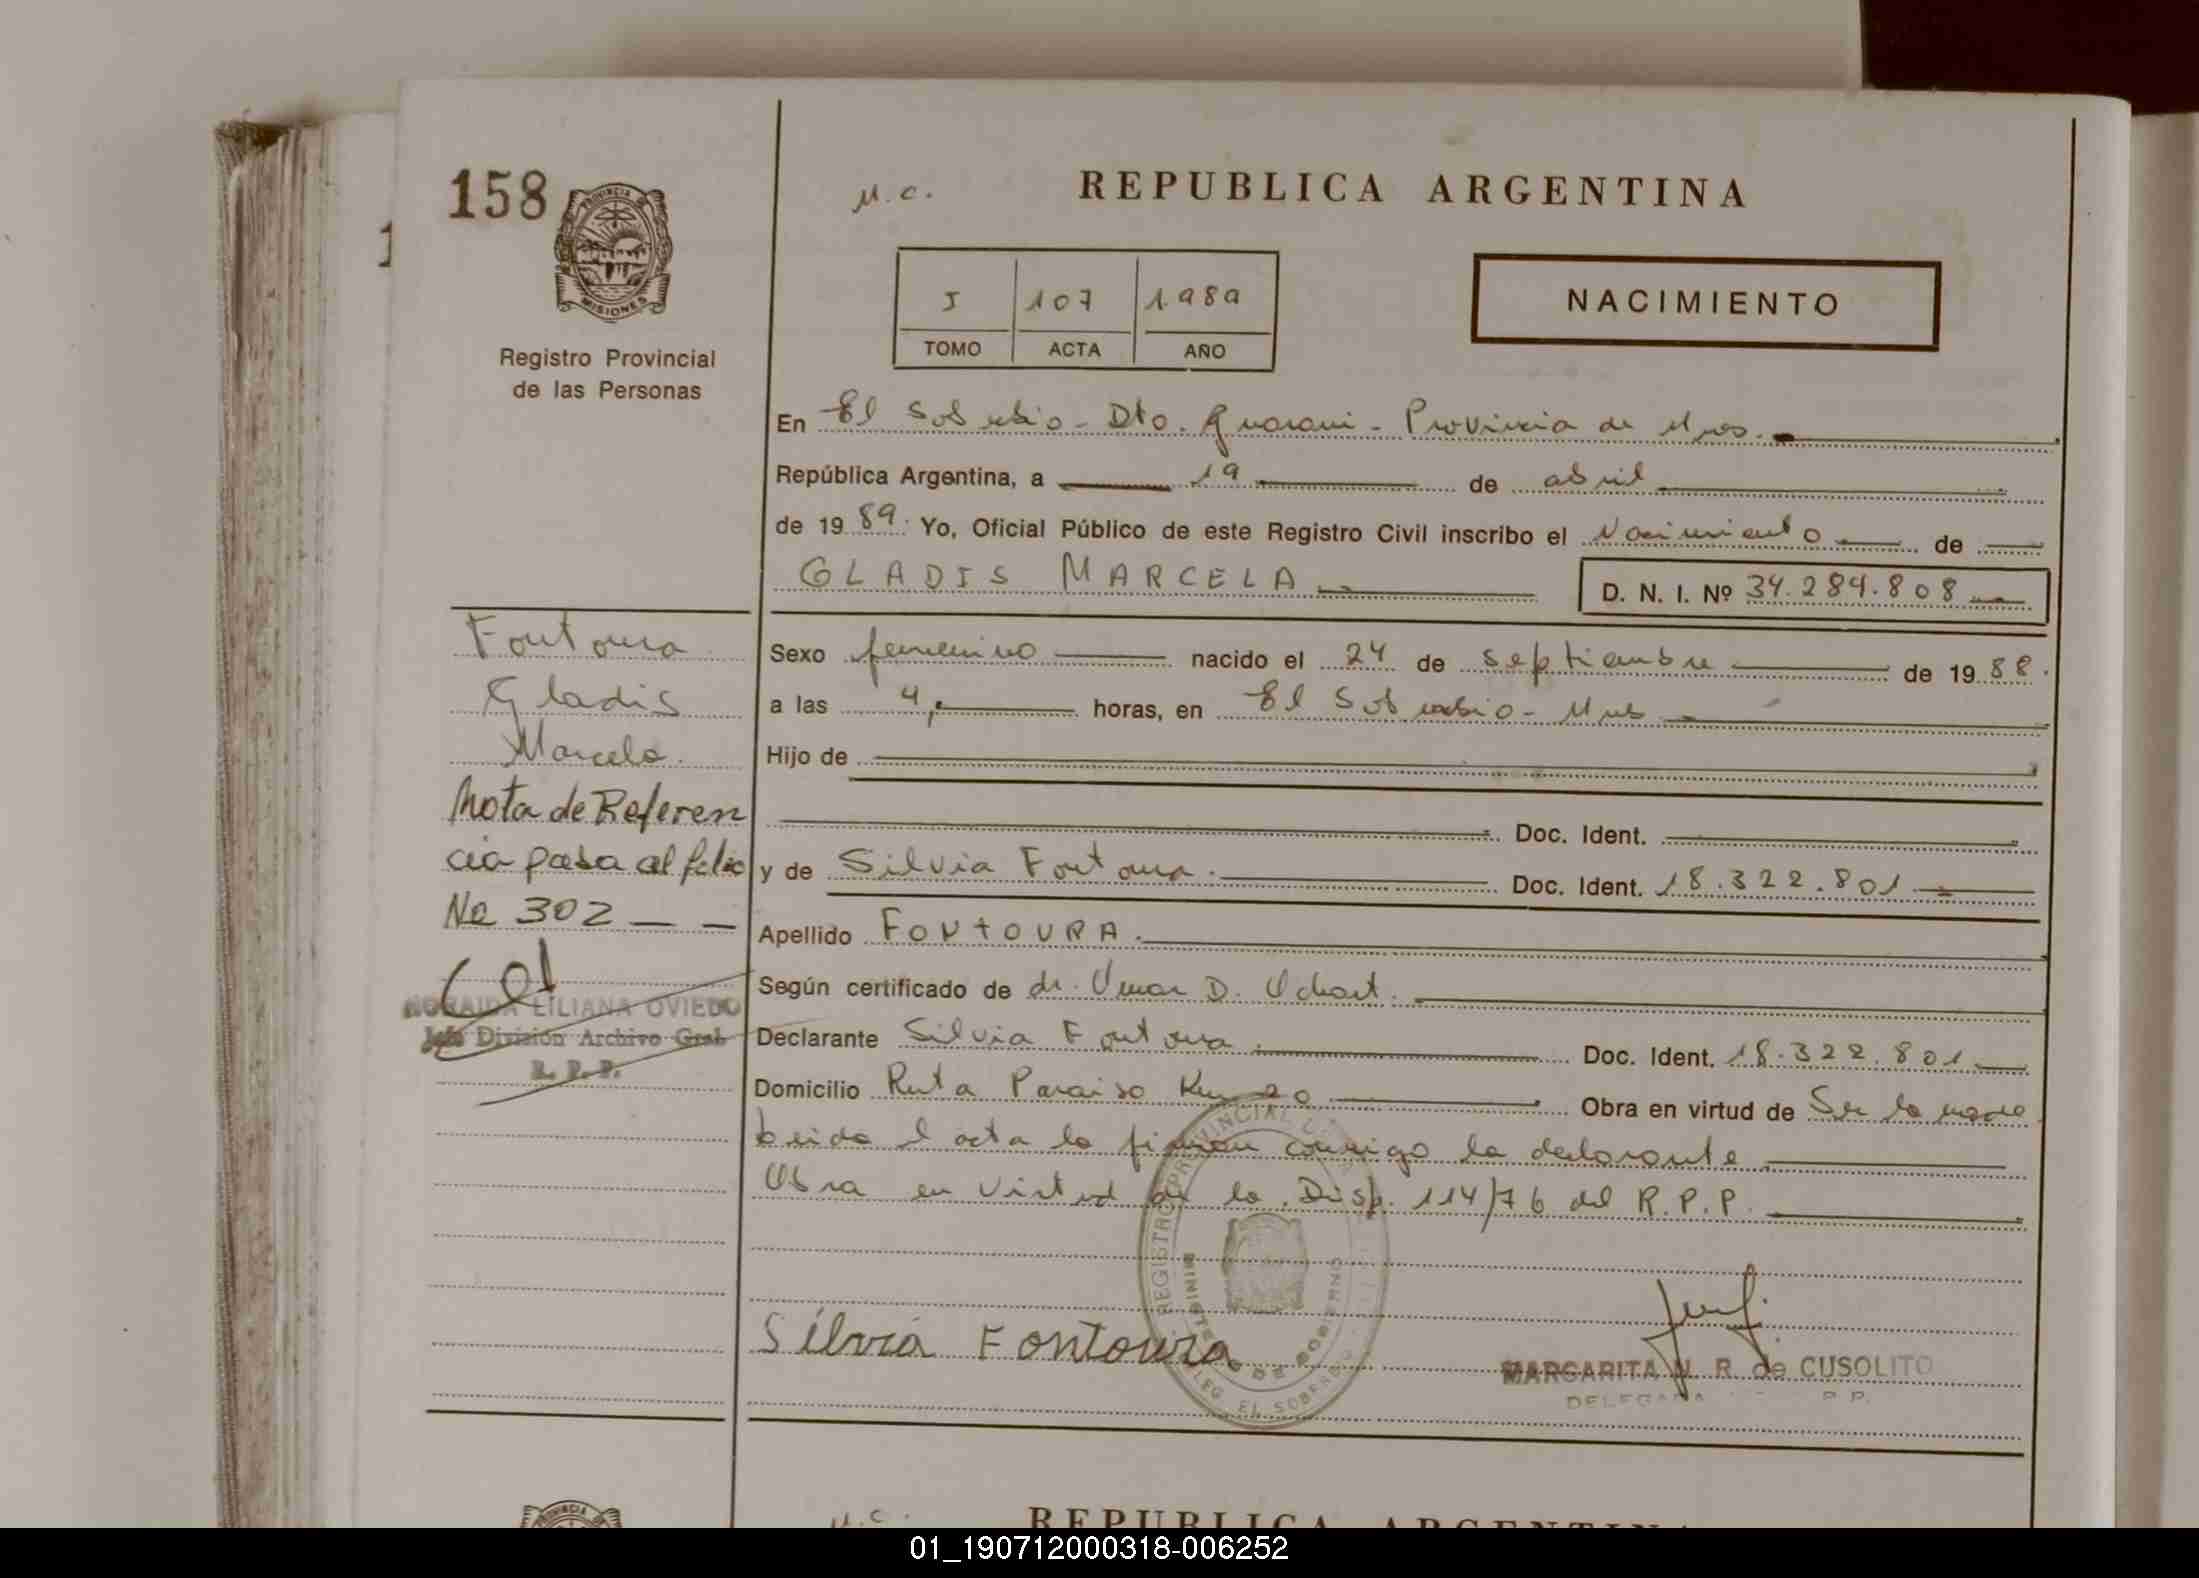 158
PROVINCIA DE
MISIONES
Registro Provincial
de las Personas
M.C.
REPUBLICA ARGENTINA
I 107 1.989
TOMO ACTA AÑO
NACIMIENTO
En El Soberbio - Dto. Guarani - Provincia de Mnes.
República Argentina, a 19 de abril
de 1989. Yo, Oficial Público de este Registro Civil inscribo el Nacimiento de
GLADIS MARCELA
D. N. I. Nº 34.284.808
Fontoura
Gladis
Marcela.
Nota de Referen
cia pasa al folio
No 302
NORAIDA LILIANA OVIEDO
Jefe División Archivo Gral
R. P. P.
Sexo femenino nacido el 24 de septiembre de 1988.
a las 4, horas, en El Soberbio - Mnes
Hijo de
Doc. Ident.
y de Silvia Fontoura. Doc. Ident. 18.322.801
Apellido FONTOURA.
Según certificado de dr. D.
Declarante Silvia Fontoura. Doc. Ident. 18.322.801
Domicilio Ruta Paraiso Km 20 Obra en virtud de Ser la madre
Leida l acta la firman conmigo la declarante
Obra en virtud de la Disp. 114/76 del R.P.P.
REGISTRO PROVINCIAL
MINISTERIO DE GOBIERNO
DELEG. EL SOBERBIO
Silvia Fontoura
MARGARITA N. R. de CUSOLITO
DELEGADA P. P.
PROVINCIA
M.C.
REPUBLICA ARGENTINA
01_190712000318-006252